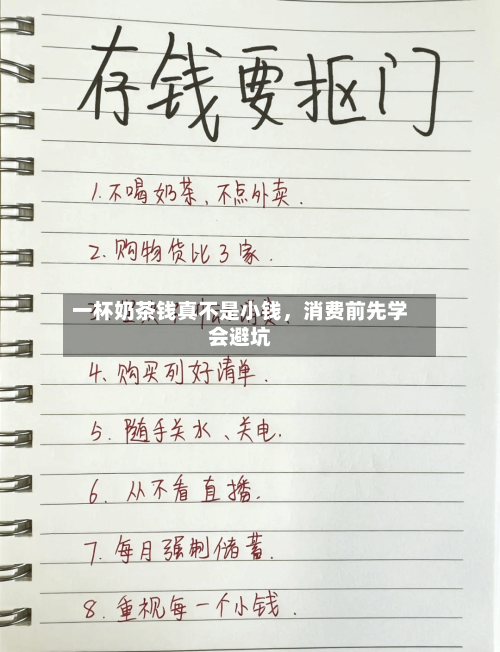 存钱要抠门
1.不喝奶茶、不点外卖.
2.购物货比3家.
一杯奶茶钱真不是小钱，消费前先学
会避坑
4、购买列好清单.
5.随手关水、关电.
6.从不看直播.
7.每月强制储蓄.
8.重视每一个小钱.